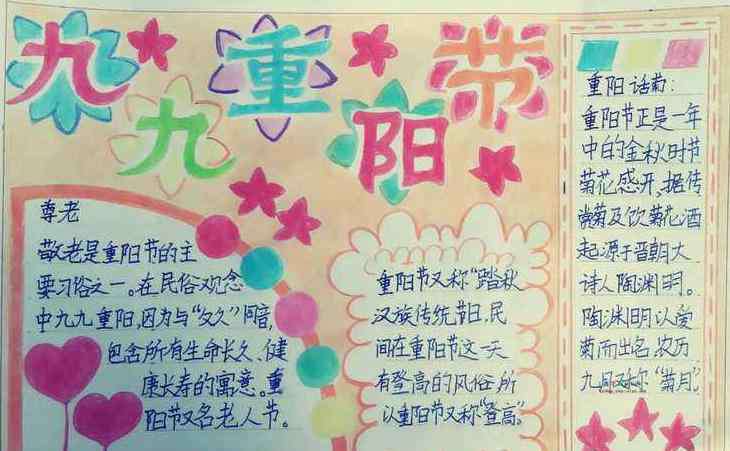 九九重阳节
尊老
敬老是重阳节的主
要习俗之一。在民俗观念
中九九重阳，因为与“久久”同音，
包含所有生命长久、健
康长寿的寓意。重
阳节又名老人节。
重阳节又称“踏秋
汉族传统节日，民
间在重阳节这一天
有登高的风俗，所
以重阳节又称“登高”。
重阳话菊：
重阳节正是一年
中的金秋时节
菊花盛开，据传
赏菊及饮菊花酒
起源于晋朝大
诗人陶渊明。
陶渊明以爱
菊而出名，农历
九月又称“菊月”